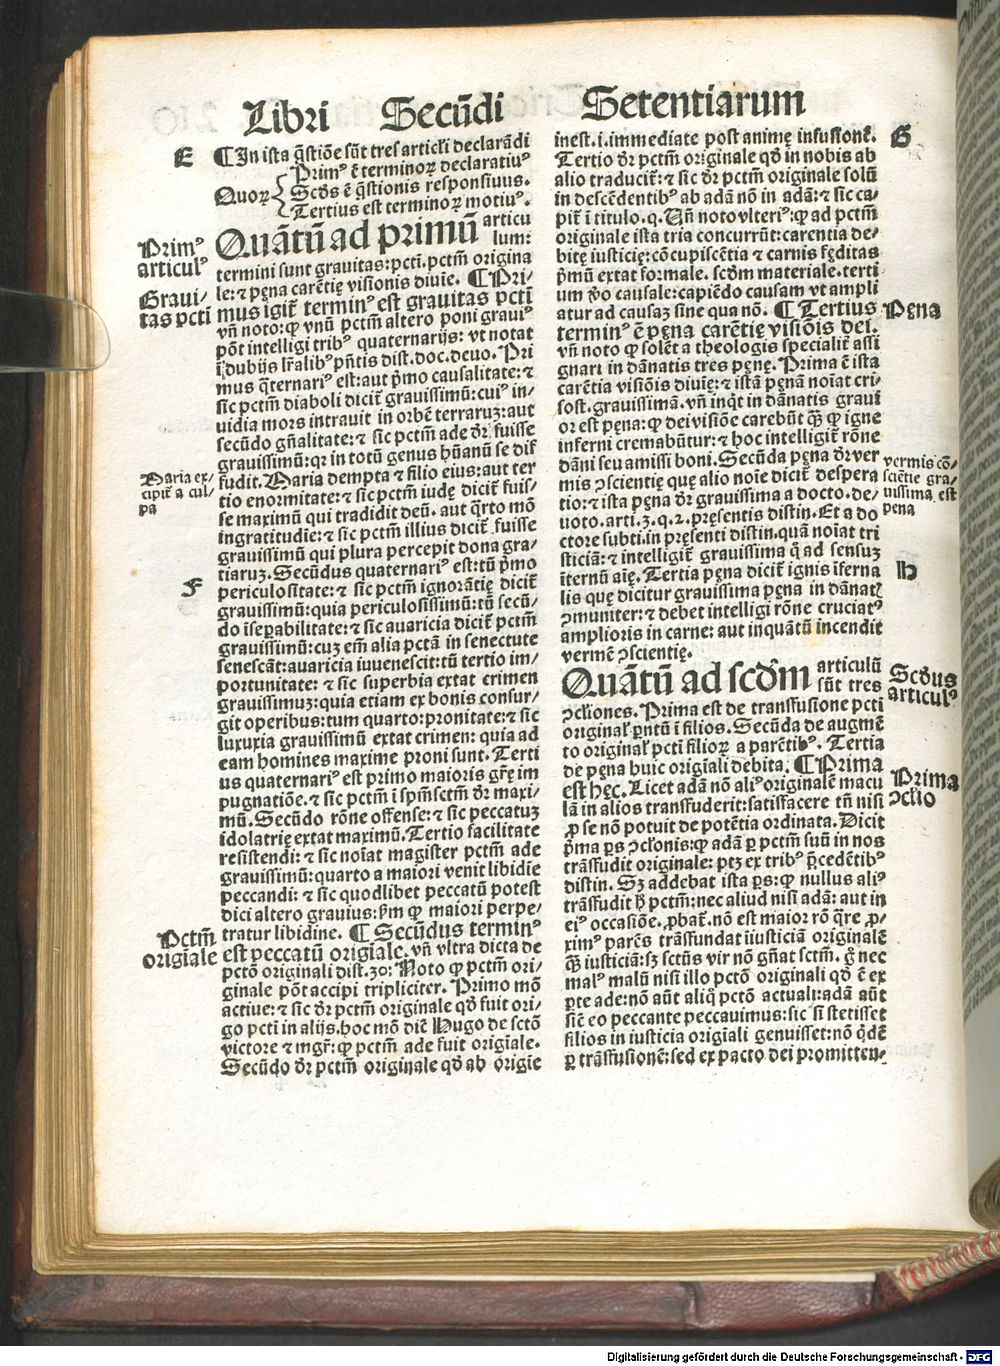 Libri Secūdi Setentiarum
E
¶ In ista q̄stiōe sūt tres articłi declarādi
Quoꝝ
Prim⁹ ē terminoꝝ declaratiu⁹
Scd̄s ē q̄stionis responsiuus.
Tertius est terminoꝝ motiu⁹.
Prim⁹
articul⁹
Quātū ad primū articu
lum:
termini sunt grauitas: pcti. pctm̄ origina
le: ⁊ pęna carētię visionis diuie. ¶ Pri
Graui-
tas pcti
mus igit̄ termin⁹ est grauitas pcti
vn̄ noto: ꝙ vnū pctm̄ altero poni graui⁹
pōt intelligi trib⁹ quaternarijs: vt notat
ī dubijs lr̄alib⁹ pn̄tis dist. doc. deuo. Pri
mus q̄ternari⁹ est: aut p̄mo causalitate: ⁊
sic pctm̄ diaboli dicit̄ grauissimū: cui⁹ in/
uidia mors intrauit in orbē terraruꝫ: aut
secūdo gn̄alitate: ⁊ sic pctm̄ ade dr̄ fuisse
grauissimū: qꝛ in totū genus hūanū se dif
Maria ex-
cipit̄ a cul-
pa
fudit. Maria dempta ⁊ filio eius: aut ter
tio enormitate: ⁊ sic pctm̄ iudę dicit̄ fuis/
se maximū qui tradidit deū. aut q̄rto mō
ingratitudie: ⁊ sic pctm̄ illius dicit̄ fuisse
grauissimū qui plura percepit dona gra/
tiaruꝫ. Secūdus quaternari⁹ est: tū p̄mo
F
periculositate: ⁊ sic pctm̄ ignorātię dicit̄
grauissimū: quia periculosissimū: tū secū/
do īsepabilitate: ⁊ sic auaricia dicit̄ pctm̄
grauissimū: cuꝫ em̄ alia pctā in senectute
senescāt: auaricia iuuenescit: tū tertio im/
portunitate: ⁊ sic superbia extat crimen
grauissimuꝫ: quia etiam ex bonis consur/
git operibus: tum quarto: pronitate: ⁊ sic
luxuxia grauissimū extat crimen: quia ad
eam homines maxime proni sunt. Terti
us quaternari⁹ est primo maioris gr̄ę im
pugnatiōe. ⁊ sic pctm̄ ī spm̄sctm̄ dr̄ maxi/
mū. Secūdo rōne offense: ⁊ sic peccatuꝫ
idolatrię extat maximū. Tertio facilitate
resistendi: ⁊ sic noīat magister pctm̄ ade
grauissimū: quarto a maiori venit libidie
peccandi: ⁊ sic quodlibet peccatū potest
dici altero grauius: p̄m ꝙ maiori perpe/
Pctm̄
origiale
tratur libidine. ¶ Secūdus termin⁹
est peccatū origiale. vn̄ vltra dicta de
pctō originali dist. 30: Noto ꝙ pctm̄ ori/
ginale pōt accipi tripliciter. Primo mō
actiue: ⁊ sic dr̄ pctm̄ originale qd̄ fuit ori/
go pcti in alijs. hoc mō diē Hugo de sctō
victore ⁊ mgr̄: ꝙ pctm̄ ade fuit origiale.
Secūdo dr̄ pctm̄ originale qd̄ ab origie
inest. i. immediate post animę infusionē.
G
Tertio dr̄ pctm̄ originale qd̄ in nobis ab
alio traducit̄: ⁊ sic dr̄ pctm̄ originale solū
in descēdentib⁹ ab adā nō in adā: ⁊ sic ca-
pit̄ ī titulo. q. Vn̄ noto vlteri⁹: ꝙ ad pctm̄
originale ista tria concurrūt: carentia de/
bitę iusticię: cōcupiscētia ⁊ carnis fęditas
p̄mū extat formale. scd̄m materiale. terti
um v̄o causale: capiēdo causam vt ampli
atur ad causaꝫ sine qua nō. ¶ Tertius
Pęna
termin⁹ ē pęna carētię visiōis dei.
vn̄ noto ꝙ solēt a theologis specialit̄ assi
gnari in dānatis tres pęnę. Prima ē ista
carētia visiōis diuię: ⁊ istā pęnā noīat cri/
sost. grauissimā. vn̄ inq̄t in dānatis graui
or est pęna: ꝙ dei visiōe carebūt q̄ꝫ ꝙ igne
inferni cremabūtur: ⁊ hoc intelligit̄ rōne
dāni seu amissi boni. Secūda pęna dr̄ ver
vermis cō-
scientie gra-
uissima est
pena
mis ꝯscientię quę alio noīe dicit̄ despera
tio: ⁊ ista pęna dr̄ grauissima a docto. de/
uoto. arti. 3. q. 2. pręsentis distin. Et a do
ctore subti. in pręsenti distin. quā noīat tri
sticiā: ⁊ intelligit̄ grauissima q̄ ad sensuꝫ
īternū aīę. Tertia pęna dicit̄ ignis īferna
H
lis quę dicitur grauissima pęna in dānat⁹
ꝯmuniter: ⁊ debet intelligi rōne cruciat⁹
amplioris in carne: aut inquātū incendit
vermē ꝯscientię.
Quātū ad scd̄m articulū
sūt tres
Scd̄us
articul⁹
ꝯclōnes. Prima est de transfusione pcti
originał pn̄tū ī filios. Secūda de augmē
to originał pcti filioꝝ a parētib⁹. Tertia
de pęna huic origīali debita. ¶ Prima
Prima
ꝯclio
est hęc. Licet adā nō ali⁹ originalē macu
lā in alios transfuderit: satisfacere tn̄ nisi
ꝑ se nō potuit de potētia ordinata. Dicit
p̄ma ꝑs ꝯclōnis: ꝙ adā ꝑ pctm̄ suū in nos
trāsfudit originale: ptꝫ ex trib⁹ p̄cedētib⁹
distin. Sꝫ addebat ista ꝑs: ꝙ nullus ali⁹
trāsfudit h̄ pctm̄: nec aliud nisi adā: aut in
ei⁹ occasiōe. ꝓbat̄. nō est maior rō q̄re ꝓ-
xim⁹ parēs trāsfundat iiusticiā originalē
q̄ꝫ iusticiā: sꝫ sctūs vir nō gn̄at sctm̄. g̊ nec
mal⁹ malū nisi illo pctō originali qd̄ ē ex
ꝑte ade: nō aūt aliq̄ pctō actuali: adā aūt
siē eo peccante peccauimus: sic si stetisset
filios in iusticia origiali genuisset: nō q̄dē
ꝑ trāsfusionē: sed ex pacto dei promitten/
Digitalisierung gefördert durch die Deutsche Forschungsgemeinschaft - DFG